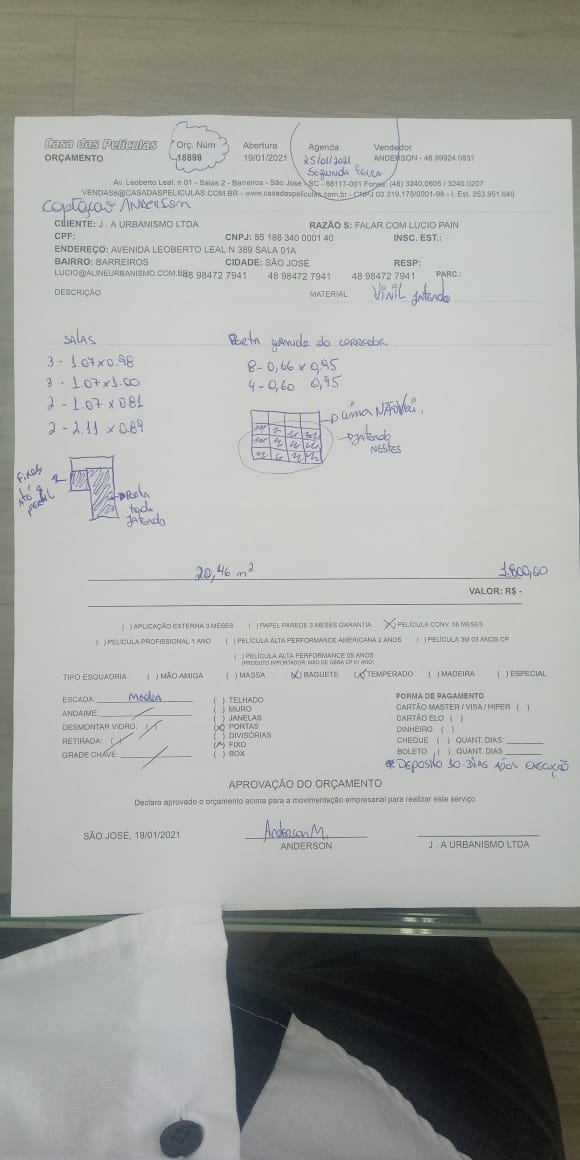 Casa das Películas
Orç. Núm
Abertura
Agenda
Vendedor
ORÇAMENTO
18898
19/01/2021
25/01/2021
ANDERSON - 48 99924 0831
SEGUNDA FEIRA
Av. Leoberto Leal, n 01 - Salas 2 - Barreiros - São José - SC - 88117-001 Fones: (48) 3240.0605 / 3240.0207
VENDAS6@CASADASPELICULAS.COM.BR - www.casadaspeliculas.com.br - CNPJ 03.319.178/0001-98 - I. Est. 253.951.640
Captação Anderson
CLIENTE: J . A URBANISMO LTDA
RAZÃO S: FALAR COM LUCIO PAIN
CPF:
CNPJ: 85 188 340 0001 40
INSC. EST.:
ENDEREÇO: AVENIDA LEOBERTO LEAL N 389 SALA 01A
BAIRRO: BARREIROS
CIDADE: SÃO JOSÉ
RESP:
LUCIO@ALINEURBANISMO.COM.BR
48 98472 7941
48 98472 7941
48 98472 7941
PARC.:
DESCRIÇÃO
MATERIAL
Vinil Jateado
SALAS
Porta grande do corredor
3 - 1.07 x 0.98
8 - 0,66 x 0,95
3 - 1.07 x 1.00
4 - 0,60 0,95
2 - 1.07 x 0.81
2 - 2.11 x 0.89
cima NÃO Vai.
Jateado
NESTES
Fixos
Até o
perfil
Porta
toda
Jateado
20,46 m²
1.800,00
VALOR: R$ -
( ) APLICAÇÃO EXTERNA 3 MESES ( ) PAPEL PAREDE 3 MESES GARANTIA (X) PELÍCULA CONV. 06 MESES
( ) PELÍCULA PROFISSIONAL 1 ANO ( ) PELÍCULA ALTA PERFORMANCE AMERICANA 2 ANOS ( ) PELÍCULA 3M 03 ANOS CP
( ) PELÍCULA ALTA PERFORMANCE 05 ANOS
(PRODUTO IMPORTADOR, MÃO DE OBRA CP 01 ANO)
TIPO ESQUADRIA ( ) MÃO AMIGA ( ) MASSA (X) BAGUETE (X) TEMPERADO ( ) MADEIRA ( ) ESPECIAL
ESCADA: Média
ANDAIME:
DESMONTAR VIDRO:
RETIRADA: ( )
GRADE CHAVE:
( ) TELHADO
( ) MURO
( ) JANELAS
(X) PORTAS
( ) DIVISÓRIAS
(X) FIXO
( ) BOX
FORMA DE PAGAMENTO
CARTÃO MASTER / VISA / HIPER ( )
CARTÃO ELO ( )
DINHEIRO ( )
CHEQUE ( ) QUANT. DIAS:
BOLETO ( ) QUANT. DIAS
* DEPOSITO 10 DIAS APÓS EXECUÇÃO
APROVAÇÃO DO ORÇAMENTO
Declaro aprovado o orçamento acima para a movimentação empresarial para realizar este serviço
SÃO JOSÉ, 19/01/2021
Anderson M.
ANDERSON
J . A URBANISMO LTDA